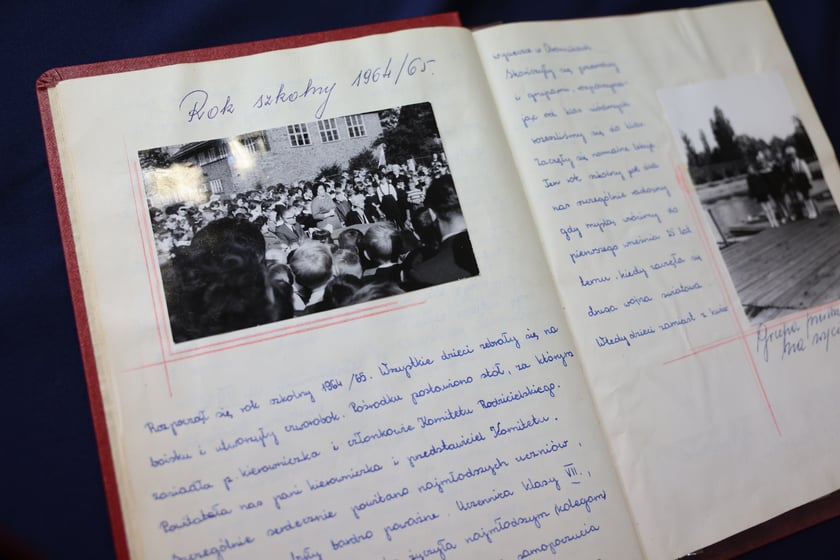 Rok szkolny 1964/65.
Rozpoczął się rok szkolny 1964/65. Wszystkie dzieci zebrały się na
boisku i utworzyły czworobok. Pośrodku postawiono stół, za którym
zasiadła p. kierowniczka i członkowie Komitetu Rodzicielskiego.
Powitała nas pani kierowniczka i przedstawiciel Komitetu.
Szczególnie serdecznie powitano najmłodszych uczniów,
były bardzo poważne. Uczennica klasy VII.,
życzyła najmłodszym kolegom
samopoczucia
Skończyły się
i
się do klas.
Zaczęły się normalne lekcje.
Ten rok szkolny jest dla
nas szczególnie radosny
gdy myślą wrócimy do
pierwszego września 25 lat
temu, kiedy zaczęła się
druga wojna światowa.
Wtedy dzieci zamiast z
Grupa
na